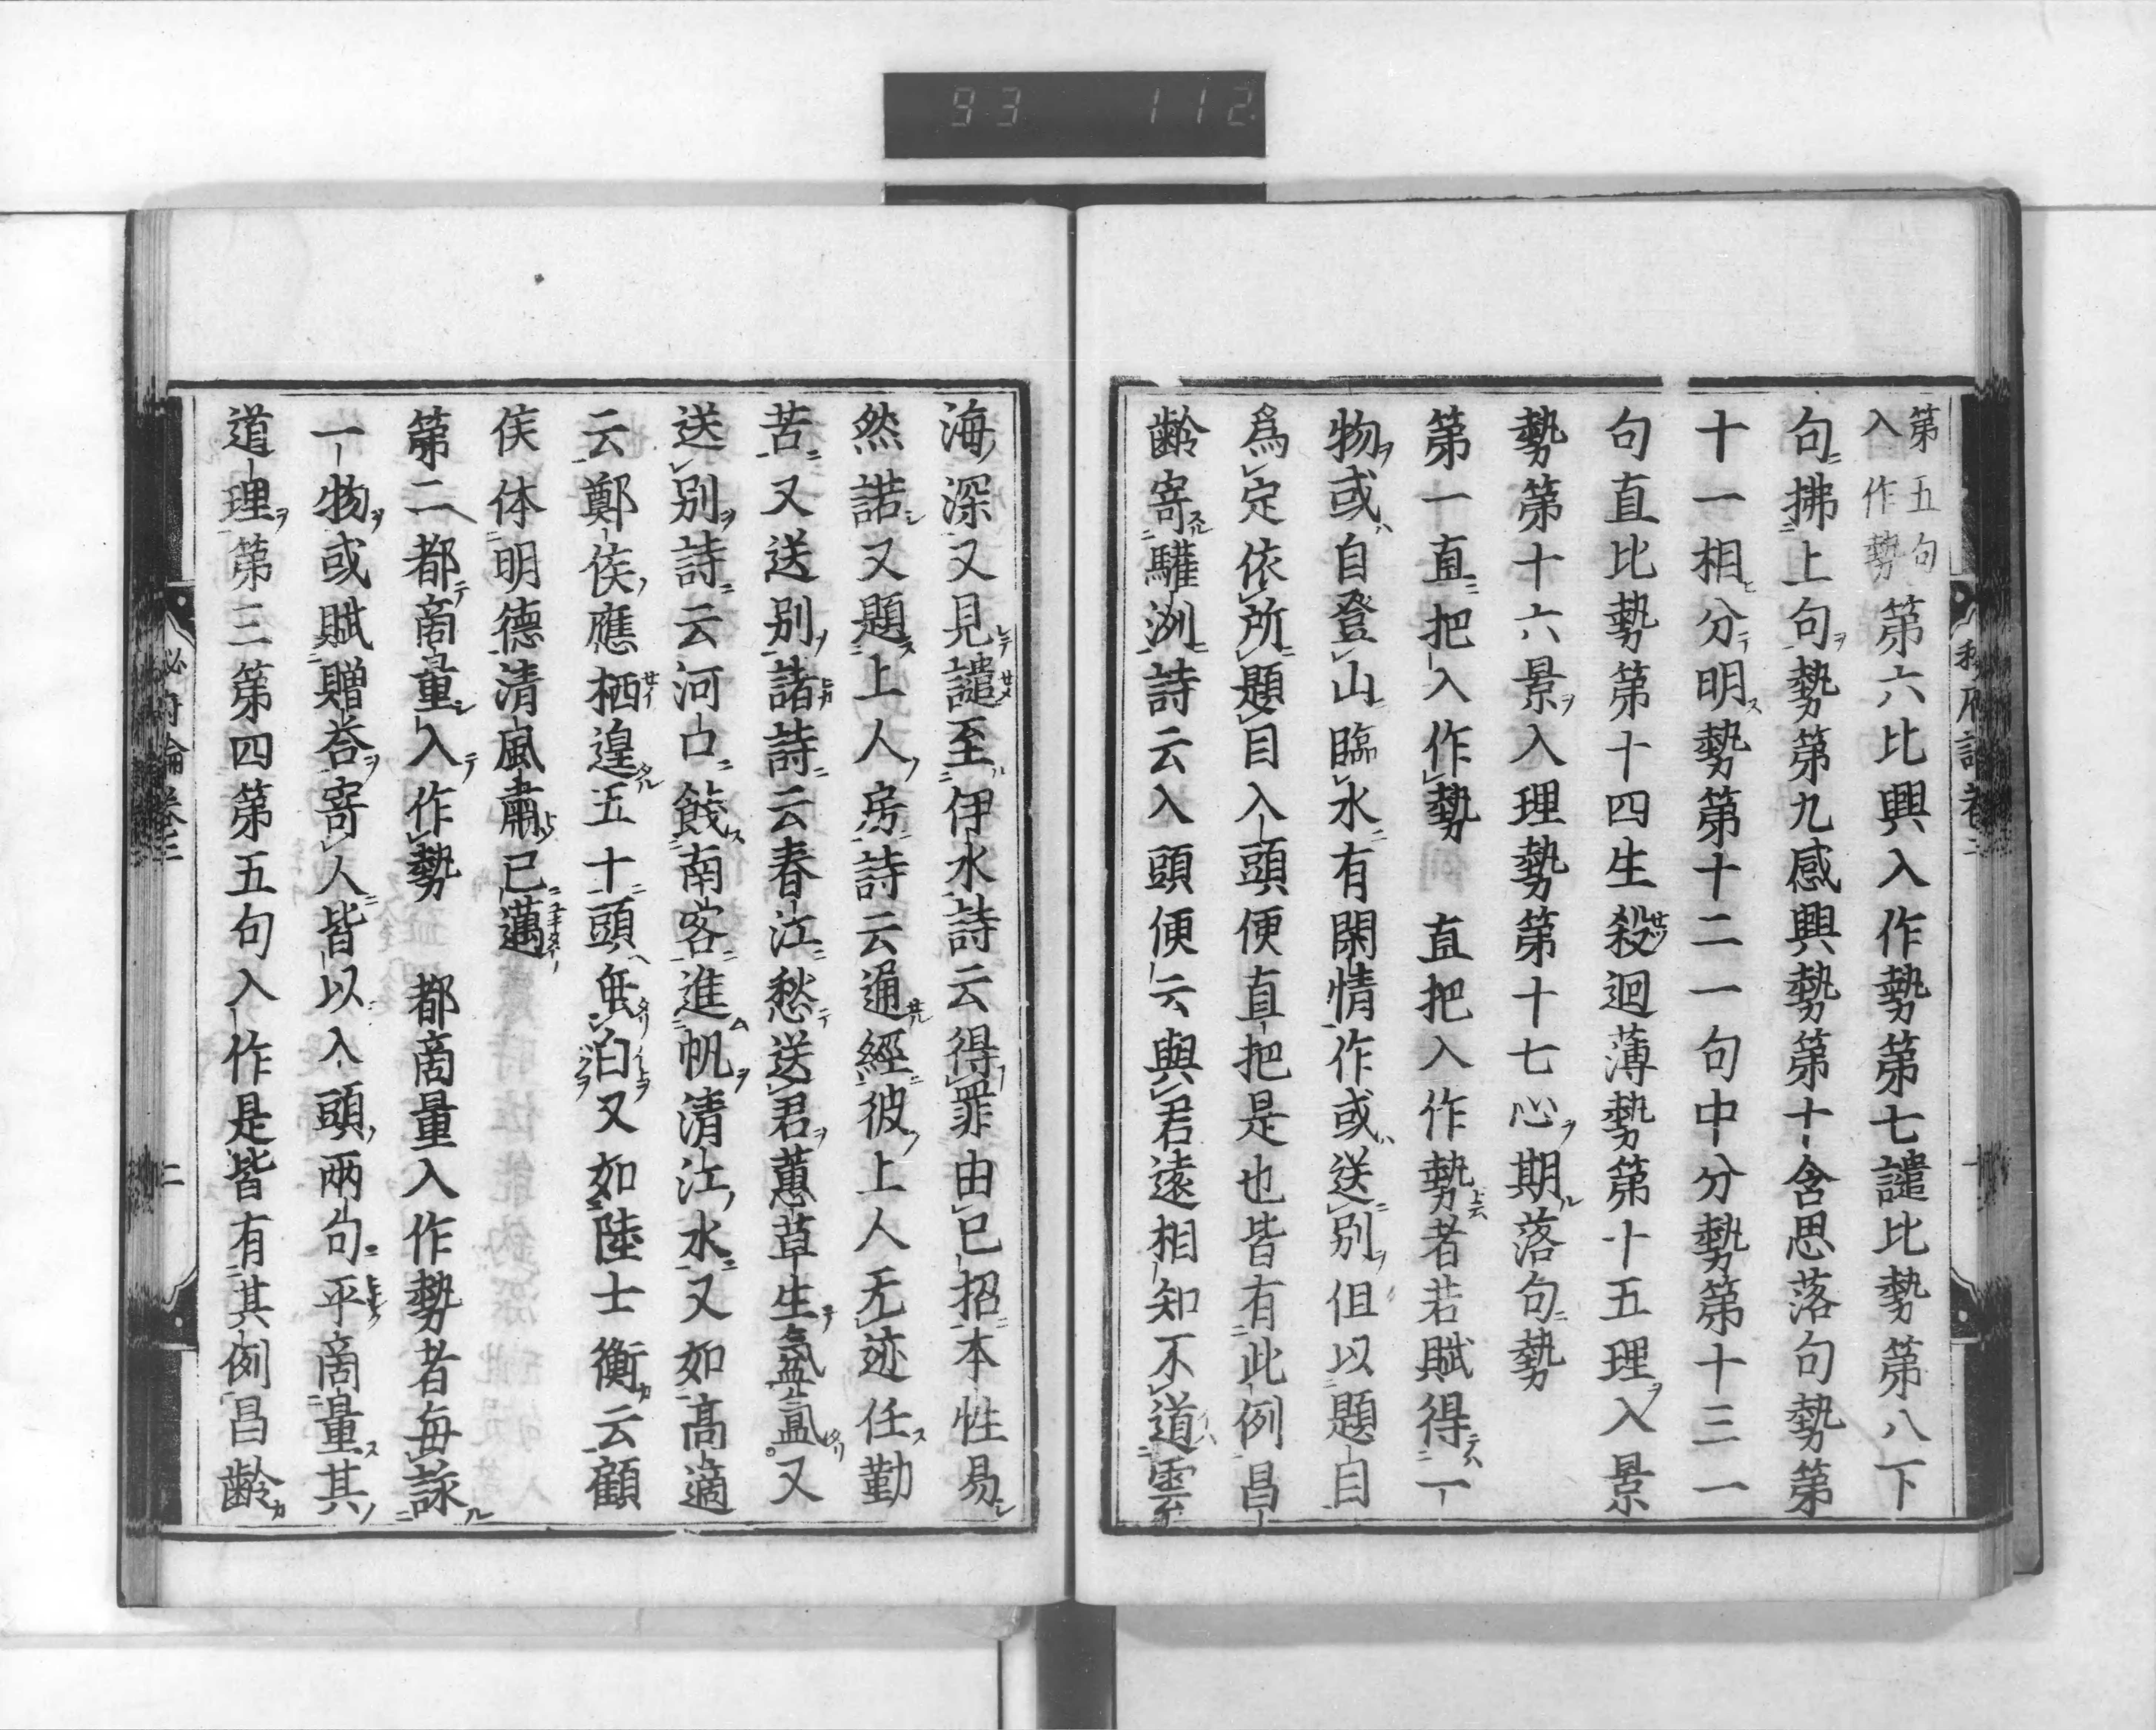 93 112
第五句
入作勢
第六比興入作勢第七譴比勢第八下
句拂上句勢第九感興勢第十含思落句勢第
十一相分明勢第十二一句中分勢第十三一
句直比勢第十四生殺迴薄勢第十五理入景
勢第十六景入理勢第十七心期落句勢
第一直把入作勢 直把入作勢者若賦得一
物或自登山臨水有閑情作或送別但以題目
爲定依所題目入頭便直把是也皆有此例昌
齡寄驩洲詩云入頭便云與君遠相知不道雲
海深又見譴至伊水詩云得罪由已招本性易
然諾又題上人房詩云通經彼上人无迹任勤
苦又送別諸詩云春江愁送君蕙草生氳氳又
送別詩云河口餞南客進帆清江水又如高適
云鄭侯應栖遑五十頭無白又如陸士衡云顧
侯体明德清風肅已邁
第二都商量入作勢 都商量入作勢者每詠
一物或賦贈荅寄人皆以入頭兩句平商量其
道理第三第四第五句入作是皆有其例昌齡
秘府論卷三 二